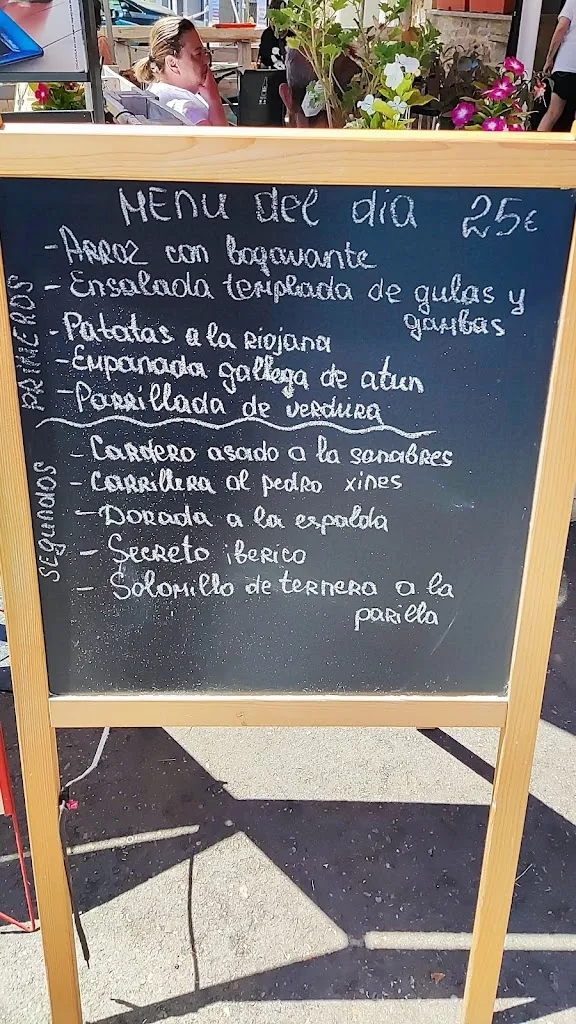 MENU del dia 25€
PRIMEROS
- ARROZ con bogavante
- Ensalada templada de gulas y
gambas
- Patatas a la Riojana
- Empanada gallega de atun
- Parrillada de verdura
Segundos
- CORDERO asado a la sanabres
- CARRILLERA al pedro xines
- Dorada a la espalda
- Secreto iberico
- Solomillo de ternera a la
parilla